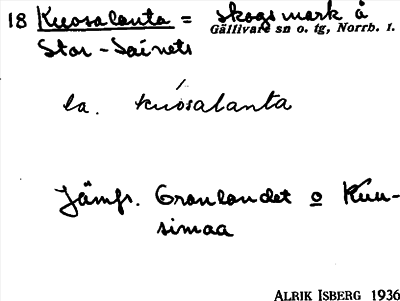 18 Kuosalanta = skogsmark å
Gällivare sn o. tg, Norrb. l.
Stor-Sainets
la. kuósalanta
Jämfr. Granlandet o Kuu-
simaa
ALRIK ISBERG 1936